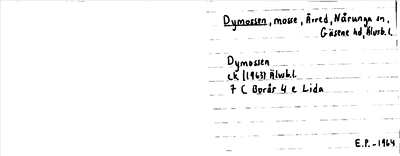 Dymossen, mosse, Åred, Nårunga sn,
Gäsene hd, Älvsb. l.
Dymossen
ek (1963) Älvsb. l.
7 C Borås 4 e Lida
E.P. - 1964